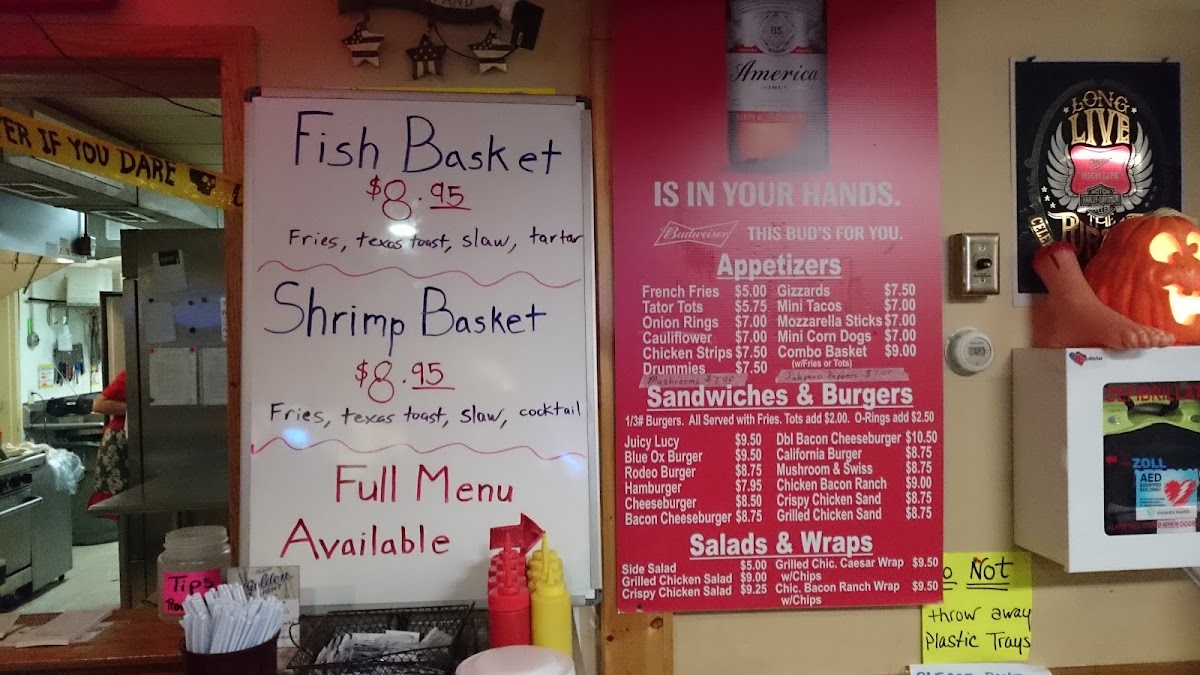 TER IF YOU DARE
Fish Basket
$8.95
Fries, texas toast, slaw, tartar
Shrimp Basket
$8.95
Fries, texas toast, slaw, cocktail
Full Menu
Available
Tips
America
IS IN YOUR HANDS.
Budweiser THIS BUD'S FOR YOU.
Appetizers
French Fries $5.00 Gizzards $7.50
Tator Tots $5.75 Mini Tacos $7.00
Onion Rings $7.00 Mozzarella Sticks $7.00
Cauliflower $7.00 Mini Corn Dogs $7.00
Chicken Strips $7.50 Combo Basket $9.00
Drummies $7.50 (w/Fries or Tots)
Mushrooms $7.00 Jalapeno Poppers $7.00
Sandwiches & Burgers
1/3# Burgers. All Served with Fries. Tots add $2.00. O-Rings add $2.50
Juicy Lucy $9.50 Dbl Bacon Cheeseburger $10.50
Blue Ox Burger $9.50 California Burger $8.75
Rodeo Burger $8.75 Mushroom & Swiss $8.75
Hamburger $7.95 Chicken Bacon Ranch $9.00
Cheeseburger $8.50 Crispy Chicken Sand $8.75
Bacon Cheeseburger $8.75 Grilled Chicken Sand $8.75
Salads & Wraps
Side Salad $5.00 Grilled Chic. Caesar Wrap $9.50
Grilled Chicken Salad $9.00 w/Chips
Crispy Chicken Salad $9.25 Chic. Bacon Ranch Wrap $9.50
w/Chips
LONG
LIVE
HIGH LIFE
MOTOR
HARLEY-DAVIDSON
THE
ZOLL
AED
o Not
throw away
Plastic Trays